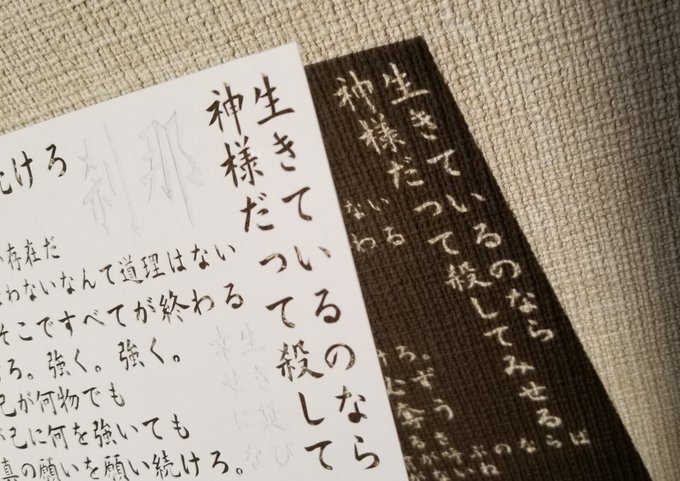 生きているのなら
神様だって殺して
刹那
けろ
存在だ
わないなんて道理はない
そこですべてが終わる
ろ。強く。強く。
己が何物でも
己に何を強いても
真の願いを願い続けろ。
生き延び
幸せにな
生きているのなら
神様だって殺してみせる
いる
なわ